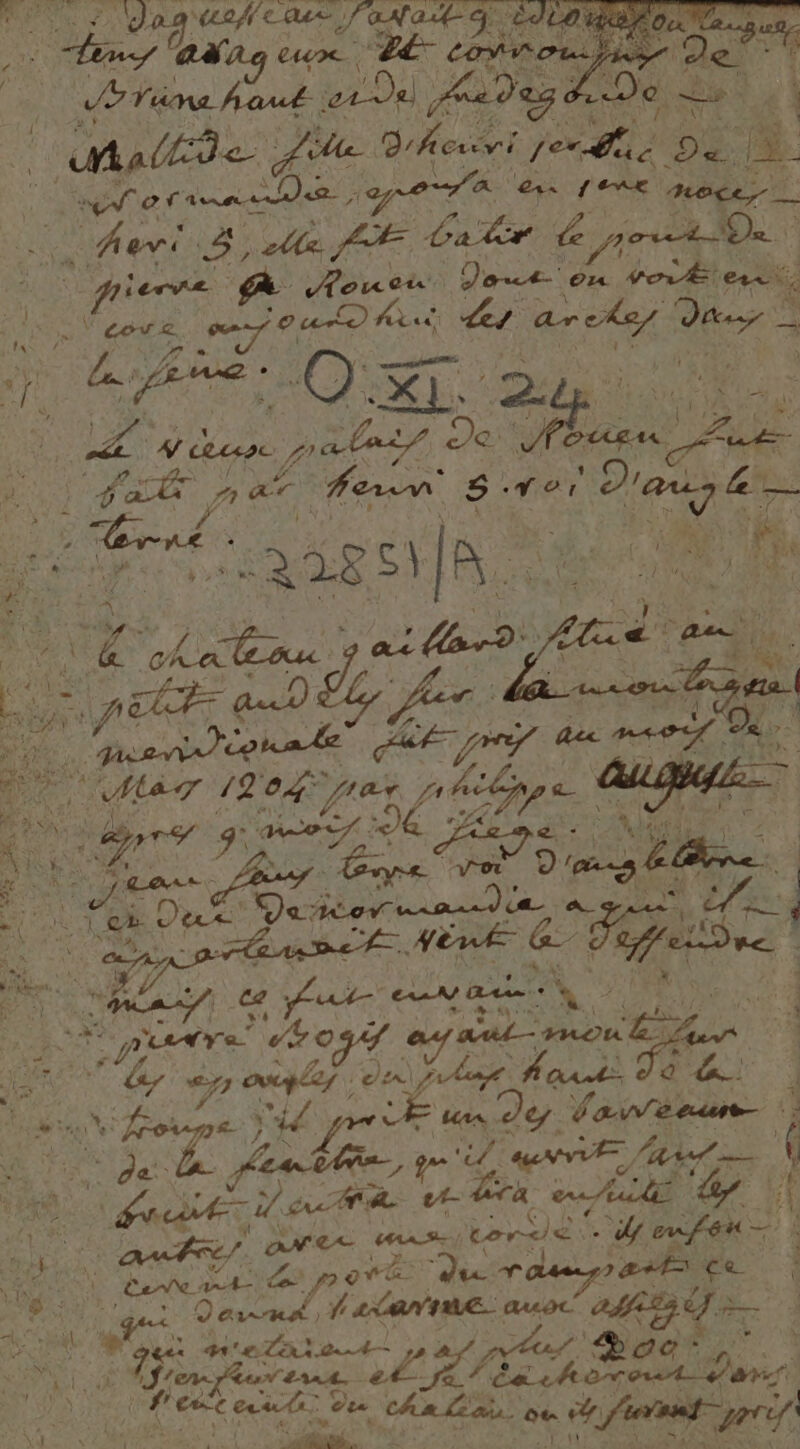 tems orageux et corrompus de
Brunehaut et de fredegonde
Matilde fille d'henri 1er duc de
Normandie, epousa en 1ere noces
henri 5, elle fit batir le pont de
pierre a Rouen dont on voit en
core aujourdhui les arches dans
la seine. O.XI. 24
Le vieux palais de Rouen fut
bati par henri 5 roi d'angle
terre.
22851/A
le chateau gaillard situé au
petit andely sur la montagne
meridionale fut pris au mois de
Mars 1204 par philippe auguste
apres 9 mois de siege.
jean sans terre roi d'angleterre
et duc de normandie a qui il
appartenait vint le deffendre
mais ce fut en vain.
pierre Bogis ayant monté sur
les epaules du plus haut de la
troupe il prit un des barreaux
de la fenêtre, qu'il ouvrit sans
bruit il entra et tira ensuite les
autres avec une corde. ils enfon
cerent la porte du rampart ce
qui donna l'alarme aux assiegés
qui n'etaient pas plus
s'enfuirent et se cacherent dans
l'enceinte du chateau ou ils furent pris